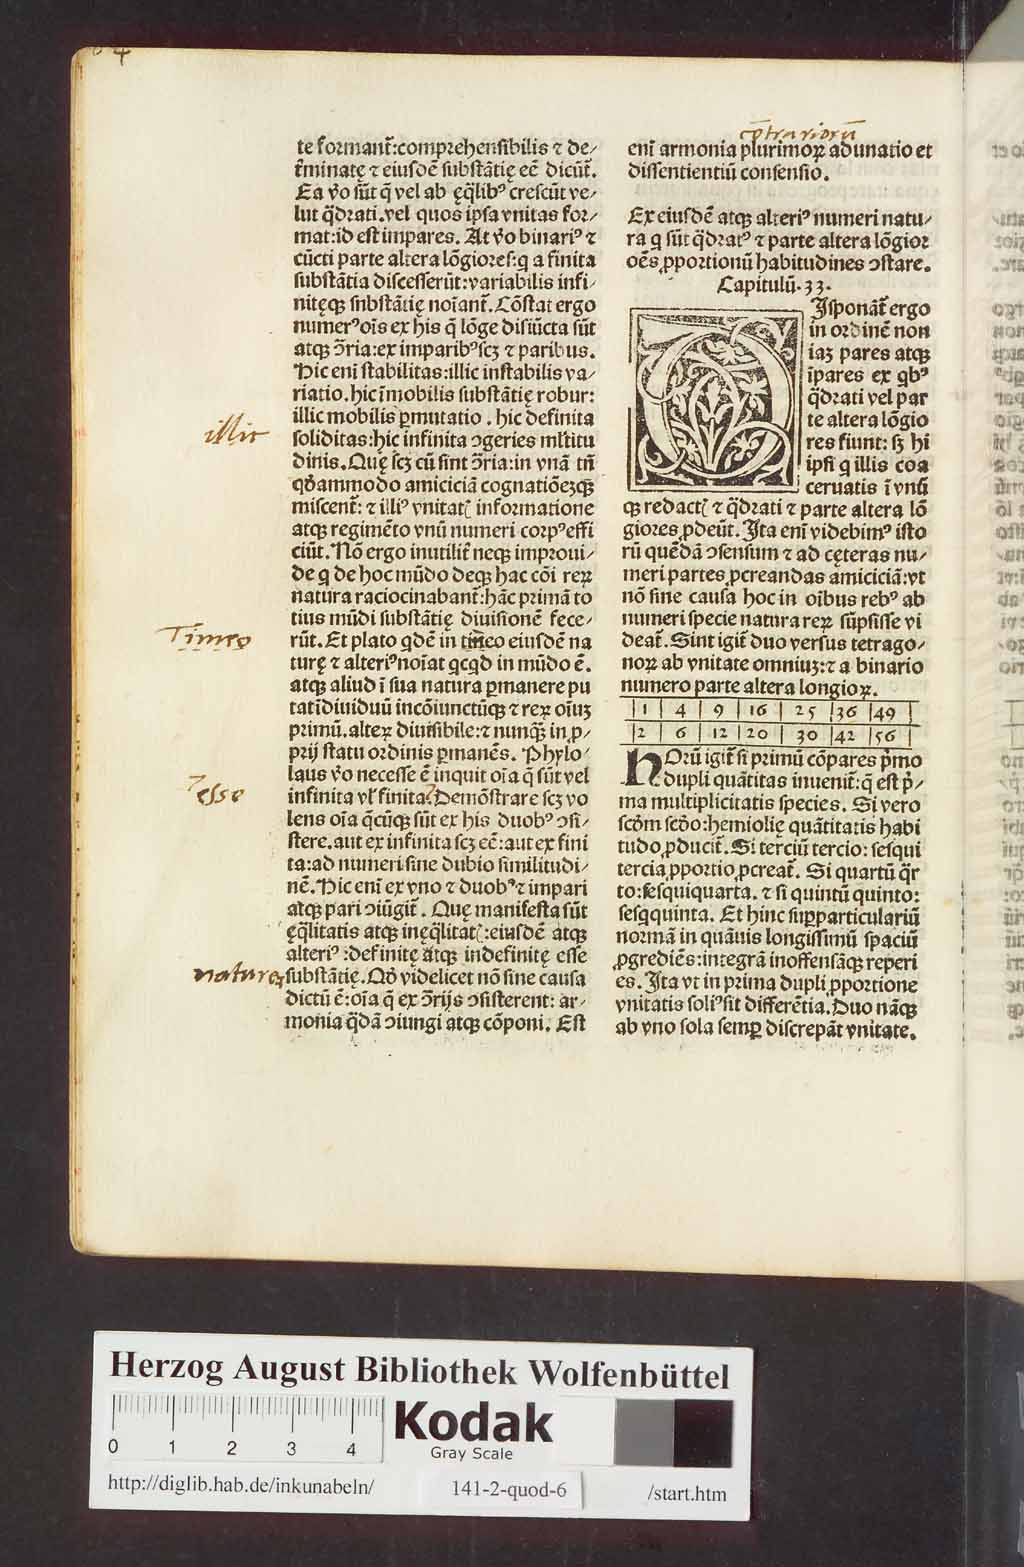 te formant̄:comprehensibilis ⁊ de/
t̄minatę ⁊ eiusdē substātię eē dicūt̄.
Ea v̓o sūt q̄ vel ab ęq̄lib⁹ crescūt ve/
lut q̄drati.vel quos ipsa vnitas for/
mat:id est impares. At v̓o binari⁹ ⁊
cūcti parte altera lōgiores:q a finita
substātia discesserūt:variabilis infi/
nitęqꝫ snbstātię noīant̄.Cōstat ergo
numer⁹oīs ex his q̄ lōge disiūcta sūt
atqꝫ ↄ̄ria:ex imparib⁹scꝫ ⁊ paribus.
Hic eni stabilitas:illic instabilis va/
riatio.hic īmobilis substātię robur:
illic mobilis ꝑmutatio . hic definita
illic
soliditas:hic infinita ↄgeries ml̄titu
dinis.Quę scꝫ cū sint ↄ̄ria:in vnā tn̄
qd̓ammodo amiciciā cognatiōeꝫqꝫ
miscent̄: ⁊ illi⁹ vnitatꝭ informatione
atqꝫ regimēto vnū numeri corp⁹effi
ciūt.Nō ergo inutilit̄ neqꝫ improui/
de q de hoc mūdo deqꝫ hac cōi reꝝ
natura raciocinabant̄:hāc primā to
tius mūdi substātię diuisionē fece/
Timeo
rūt.Et plato qdē in timeo eiusdē na
turę ⁊ alteri⁹noīat qcqd in mūdo ē.
atqꝫ aliud ī sua natura ꝑmanere pu
tat īdiuiduū incōiunctūqꝫ ⁊ reꝝ oīuꝫ
primū.alteꝝ diuisibile:⁊ nunqꝫ̄ in ꝓ/
prij statu ordinis ꝑmanēs. Phylo/
laus v̓o necesse ē inquit oīa q̄ sūt vel
esse
infinita vl̓ finita. Demōstrare scꝫ vo
lens oīa q̄cūqꝫ sūt ex his duob⁹ ↄsi/
stere.aut ex infinita scꝫ eē:aut ex fini
ta:ad numeri sine dubio similitudi/
nē.Hic eni ex vno ⁊ duob⁹⁊ impari
atqꝫ pari ↄiūgit̄. Quę manifesta sūt
ęq̄litatis atqꝫ inęq̄litatꝭ:eiusdē atqꝫ
alteri⁹:definitę atqꝫ indefinitę esse
nature
substātię.Qd̓ videlicet nō sine causa
dictū ē:oīa q̄ ex ↄ̄rijs ↄsisterent: ar/
monia q̄dā ↄiungi atqꝫ cōponi. Est
cōtrariorū
eni armonia plurimoꝝ adunatio et
dissentientiū consensio.
Ex eiusdē atqꝫ alteri⁹ numeri natu/
ra q sūt q̄drat⁹ ⁊ parte altera lōgior
oēs ꝓportionū habitudines ↄstare.
Capitulū.33.
DIsponāt̄ ergo
in ordinē non
iaꝫ pares atqꝫ
īpares ex qb⁹
q̄drati vel par
te altera lōgio
res fiunt: sꝫ hi
ipsi q illis coa
ceruatis ī vnū
qꝫ redactꝭ ⁊ q̄drati ⁊ parte altera lō
giores ꝓdeūt.Ita eni videbim⁹ isto
rū quēdā ↄsensum ⁊ ad cęteras nu/
meri partes ꝓcreandas amiciciā:vt
nō sine causa hoc in oībus reb⁹ ab
numeri specie natura reꝝ sūpsisse vi
deat̄.Sint igit̄ duo versus tetrago/
noꝝ ab vnitate omniuꝫ:⁊ a binario
numero parte altera longioꝝ.
|1 | 4 | 9 |16 | 25 |36 |49|
|2 | 6 |12 |20 | 30 |42 |56|
HOrū igit̄ si primū cōpares p̄mo
dupli quātitas inuenit̄:q̄ est p̄/
ma multiplicitatis species. Si vero
scd̓m scd̓o:hemiolię quātitatis habi
tudo ꝓducit̄.Si terciū tercio: sesqui
tercia ꝓportio ꝓcreat̄. Si quartū q̄r
to:sesquiquarta. ⁊ si quintū quinto:
sesqquinta. Et hinc suꝑparticulariū
normā in quāuis longissimū spaciū
ꝓgrediēs:integrā inoffensāqꝫ reperi
es. Ita vt in prima dupli ꝓportione
vnitatis soli⁹sit differētia. Duo nāqꝫ
ab vno sola semꝑ discrepāt vnitate.
Herzog August Bibliothek Wolfenbüttel
0 1 2 3 4
Kodak
Gray Scale
http://diglib.hab.de/inkunabeln/ 141-2-quod-6 /start.htm